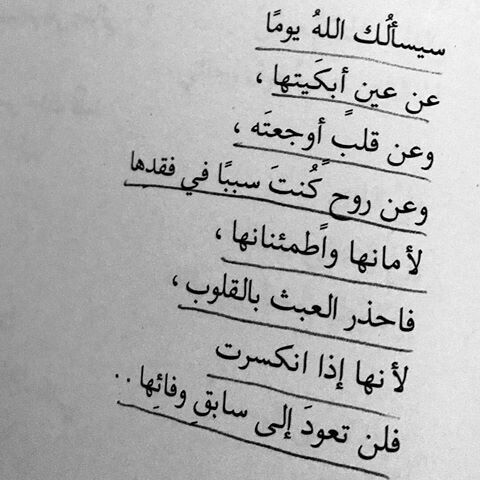 سيسألُك اللهُ يومًا
عن عين أبكَيتها ،
وعن قلبٍ أوجعتَه ،
وعن روحٍ كُنتَ سببًا في فقدها
لأمانها واطمئنانها ،
فاحذر العبث بالقلوب ،
لأنها إذا انكسرت
فلن تعودَ إلى سابقِ وفائِها ..